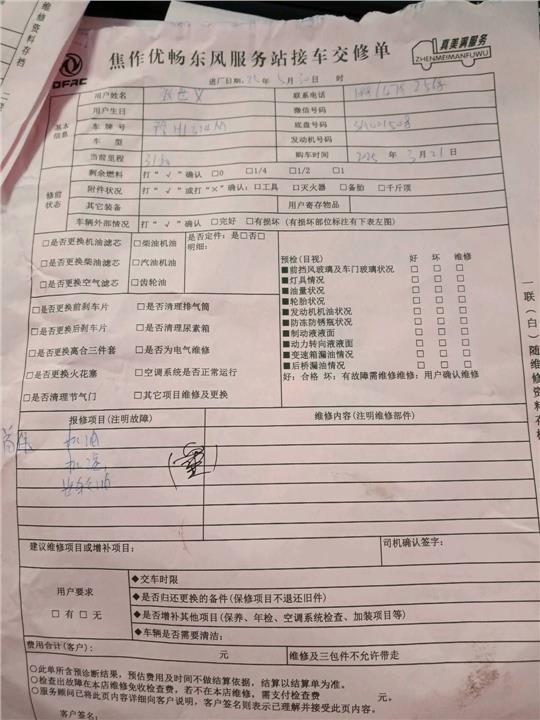 维修资料存档
二
DFAC
焦作优畅东风服务站接车交修单
真美满服务
ZHENMEIMANFUWU
进厂日期: 25年 5月30日 时
基本信息
用户姓名
联系电话
用户生日
微信号码
车牌号
底盘号码
车型
发动机号码
当前里程
购车时间 2025年 3月21日
修前状态
剩余燃料 打“√”确认 □0 □1/4 □1/2 □1
附件状况 打“√”或打“×”确认: □工具 □灭火器 □备胎 □千斤顶
其它装备
用户寄存物品
车辆外部情况 打“√”确认 □完好 □有损坏(有损坏部位标注有下表左图)
□是否更换机油滤芯
□是否更换柴油滤芯
□是否更换空气滤芯
□柴油机油
□汽油机油
□齿轮油
是否定件: 是□否□
明细:
□是否更换前刹车片 □是否清理排气筒
□是否更换后刹车片 □是否清理尿素箱
□是否更换离合三件套 □是否为电气维修
□是否更换火花塞 □空调系统是否正常运行
□是否清理节气门 □其它项目维修及更换
预检(目视) 好 坏 维修
■前挡风玻璃及车门玻璃状况 □ □ □
■灯具情况 □ □ □
■油量状况 □ □ □
■轮胎状况 □ □ □
■发动机机油状况 □ □ □
■防冻防锈瓶状况 □ □ □
■制动液液面 □ □ □
■动力转向液液面 □ □ □
■变速箱漏油情况 □ □ □
■后桥漏油情况 □ □ □
好: 合格 坏: 有故障需维修维修: 用户确认维修
报修项目(注明故障)
维修内容(注明维修部件)
首保 机油
机滤
建议维修项目或增补项目:
司机确认签字:
用户要求
□有□无
◆交车时限
◆是否归还更换的备件(保修项目不退还旧件)
◆是否增补其他项目(保养、年检、空调系统检查、加装项目等)
◆车辆是否需要清洁:
费用合计(客户): 元
维修及三包件不允许带走
○此单所含预诊断结果, 预估费用及时间不做结算依据, 结算以结算单为准。
○检查出故障在本店维修免收检查费, 若不在本店维修, 需支付检查费 元。
○服务顾问已将此页内容详细向客户说明, 客户签名则表示已理解并接受此页内容。
客户签名:
一联(白)随维修资料存档